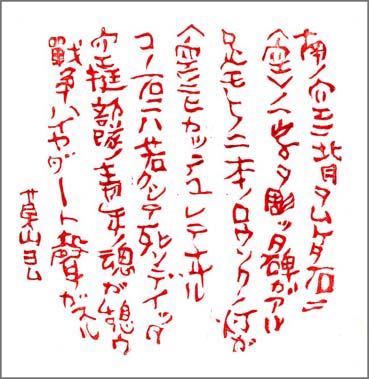 南ノ空ニ背ヲムケタ石ニ
〈空〉ノ一字ヲ彫ッタ碑ガアル
足モトノ二本ノロウソクノ灯が
〈空〉ニヒカッテユレテヰル
コノ石ニハ若クシテ死ンデイッタ
空挺部隊ノ青年ノ魂が憩ウ
戰争ハイヤダート聲ガスル
山ヨム